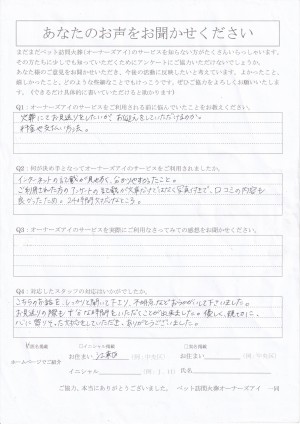 あなたのお声をお聞かせください
まだまだペット訪問火葬(オーナーズアイ)のサービスを知らない方がたくさんいらっしゃいます。
その方たちに少しでも知っていただくためにアンケートにご協力いただけないでしょうか。
あなた様のご意見をお聞かせいただき、今後の活動に反映したいと考えています。よかったこと、
嬉しかったこと、どのような些細なことでもけっこうです。ぜひご協力をよろしくお願いいたしま
す。(できるだけ具体的に書いていただけると助かります)
Q1：オーナーズアイのサービスをご利用される前に悩んでいたことをお教えください。
火葬にてお見送りをしたいが、お迎えをしていただけるのか。
料金や支払い方法。
Q2：何が決め手となってオーナーズアイのサービスをご利用されましたか。
インターネットの記載が見やすく、分かりやすかったこと。
ご利用された方のアンケートの記載が文章だけではなく写真付きで、口コミの内容も
良かったため。24時間
Q3：オーナーズアイのサービスを実際にご利用なさってみての感想をお聞かせください。
Q4：対応したスタッフの対応はいかがでしたか。
こちらのお話を、しっかりと聞いて下さり、不明点などおうかがいして下さいました。
お見送りの際も十分な時間をいただくことが出来ました。優しく、親切に、
心に寄りそった対応をしていただき、ありがとうございました。
ホームページでご紹介
匿名掲載
イニシャル掲載
実名掲載
お住まい 江東区
お住まい
イニシャル
氏名
ご協力、本当にありがとうございました。 ペット訪問火葬オーナーズアイ 一同